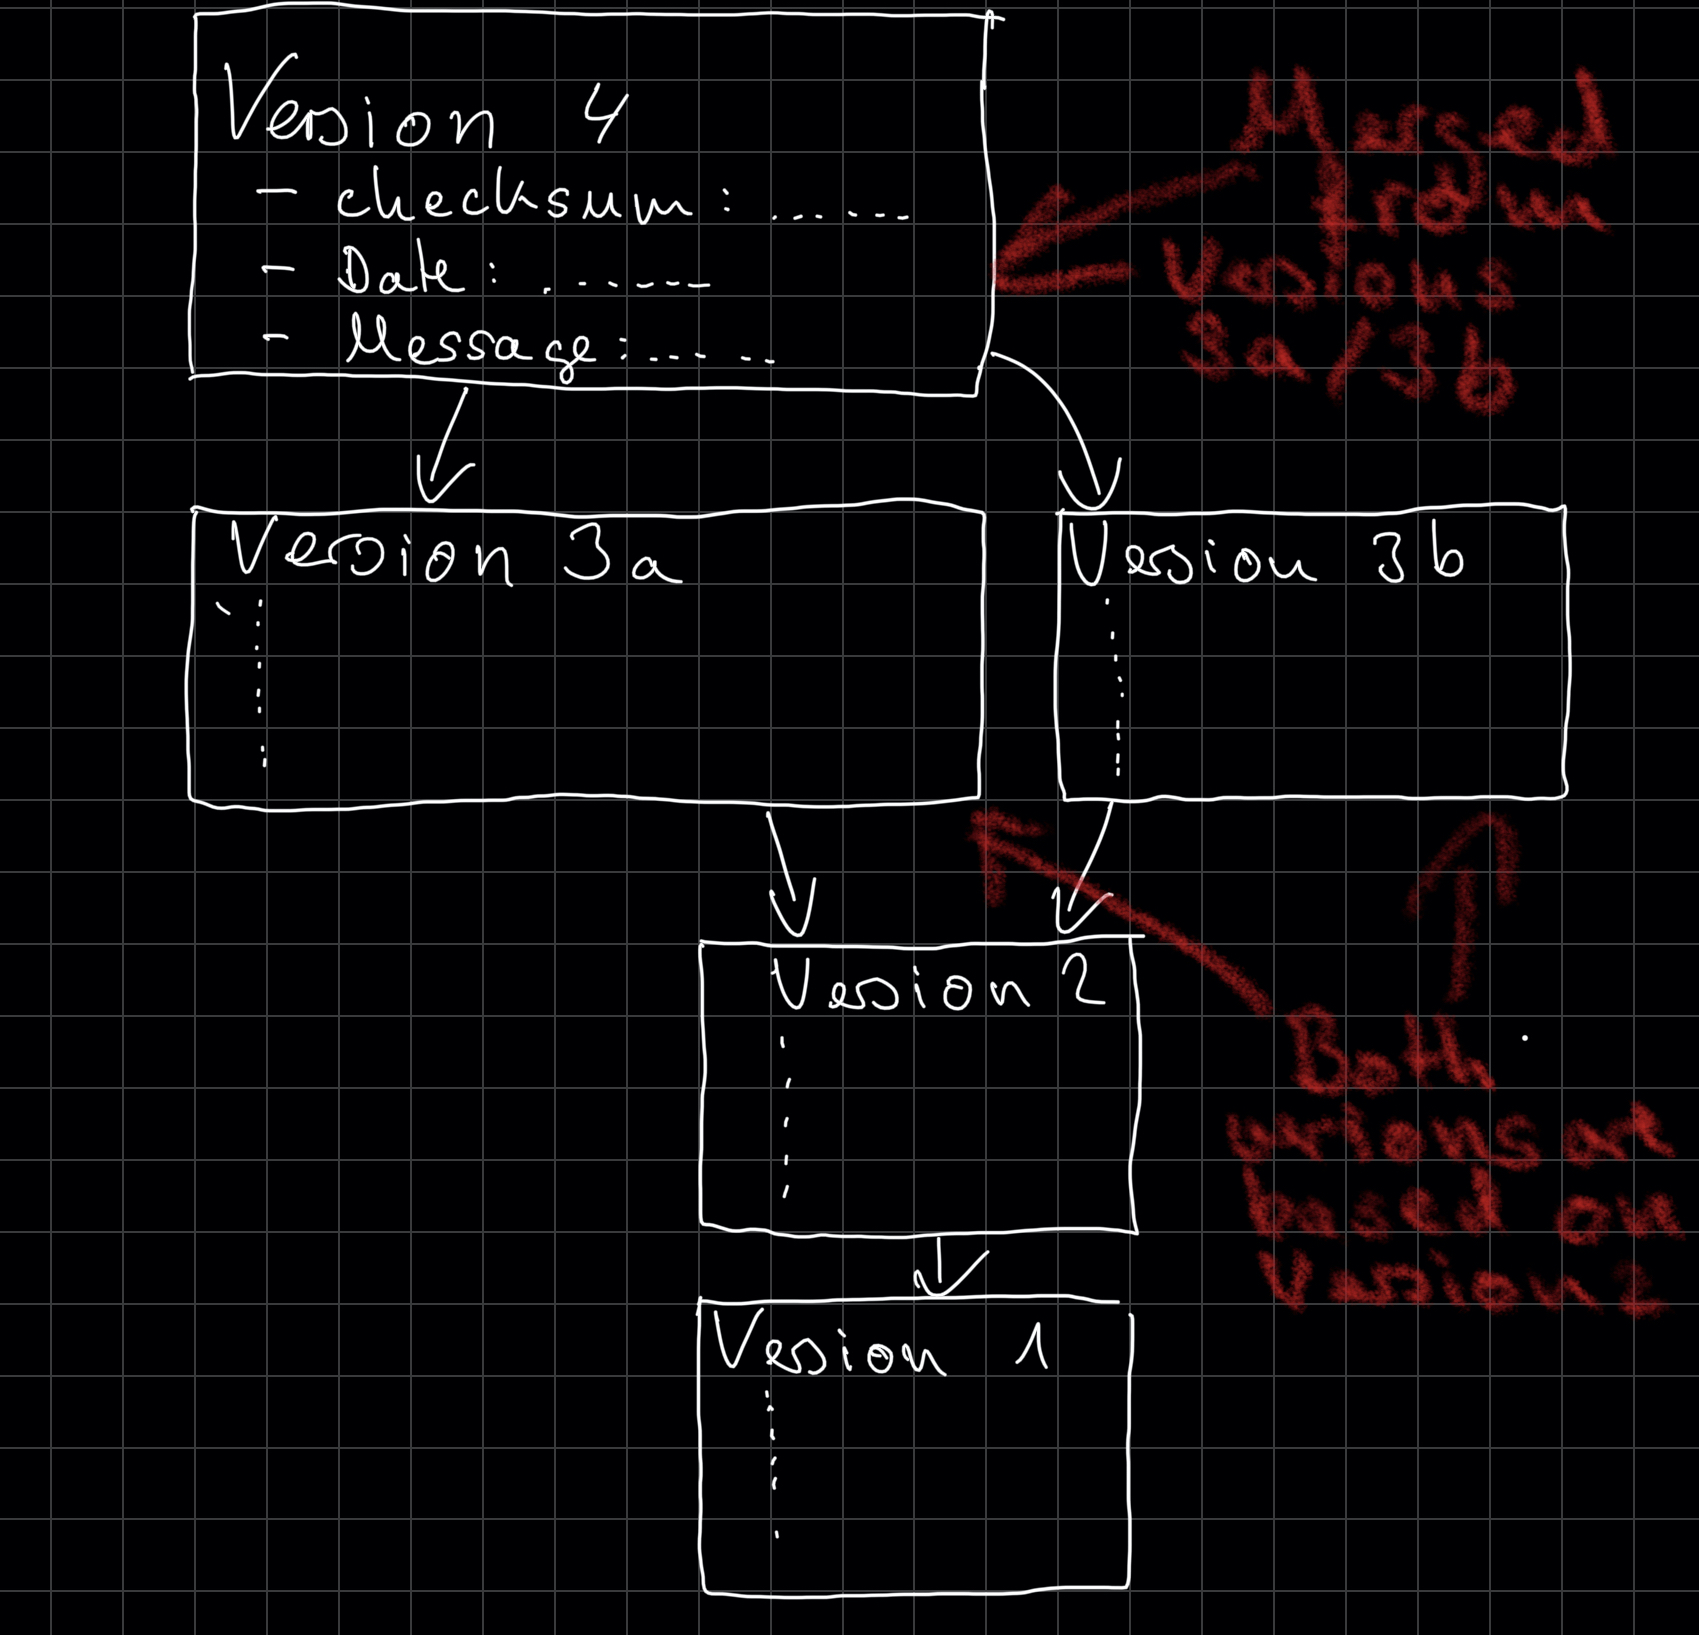 Version 4
- checksum: ......
- Date: .......
- Message: ......
Merged
from
Versions
3a/3b
Version 3a
Version 3b
Version 2
Both
versions are
based on
Version 2
Version 1